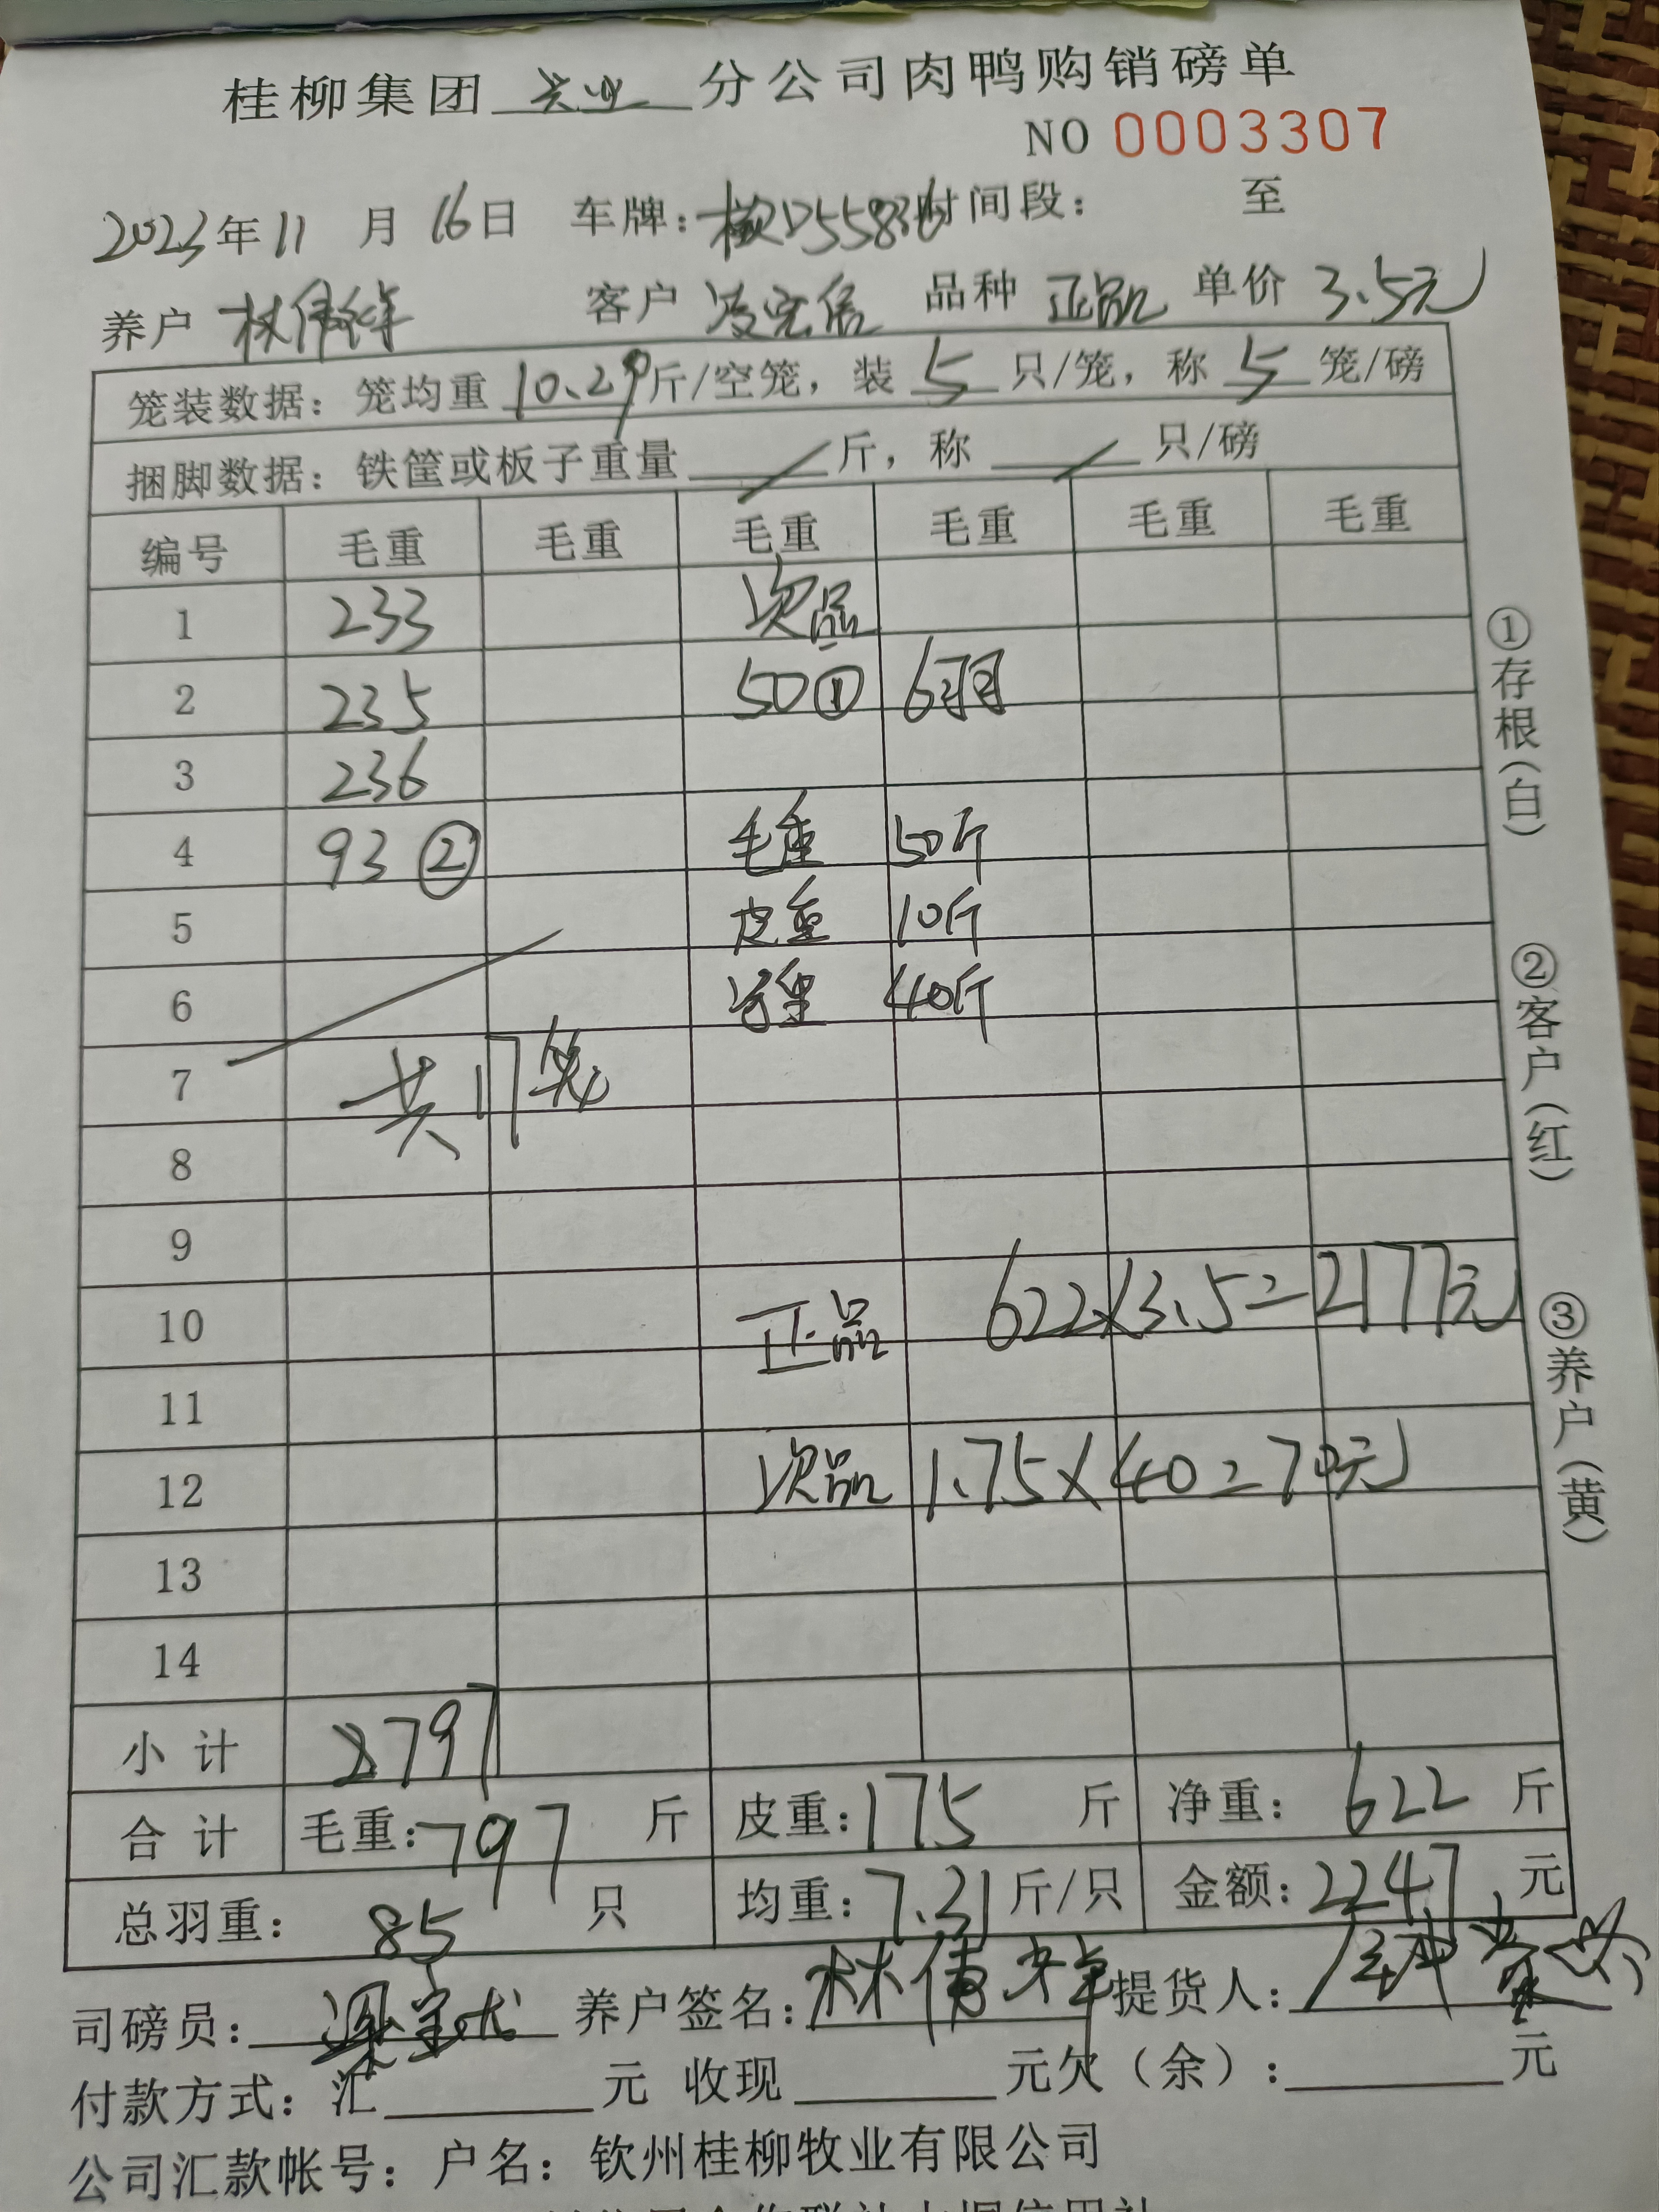 桂柳集团 分公司肉鸭购销磅单
NO 0003307
2023年11月16日 车牌: 时间段: 至
养户 客户 品种 正品 单价 3.5元
笼装数据: 笼均重 10.29 斤/空笼, 装 5 只/笼, 称 5 笼/磅
捆脚数据: 铁筐或板子重量 / 斤, 称 / 只/磅
编号 毛重 毛重 毛重 毛重 毛重 毛重
1 233 次品
2 235 50① 6羽
3 236
4 93② 毛重 50斤
5 皮重 10斤
6 40斤
7 共17笼
8
9
10 正品 622×3.5=2177元
11
12 次品 1.75×40=70元
13
14
小计 797
合计 毛重: 797 斤 皮重: 175 斤 净重: 622 斤
总羽重: 85 只 均重: 7.31 斤/只 金额: 2247 元
司磅员: 养户签名: 提货人:
付款方式: 汇 元 收现 元欠(余): 元
公司汇款帐号: 户名: 钦州桂柳牧业有限公司
①存根(白)
②客户(红)
③养户(黄)